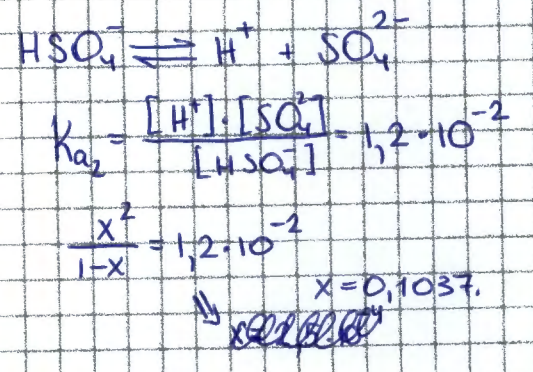 HSO₄⁻ ⇌ H⁺ + SO₄²⁻
Kₐ₂ = [H⁺]·[SO₄²⁻] / [HSO₄⁻] = 1,2·10⁻²
x² / 1-x = 1,2·10⁻²
⇓ x = 0,1037.